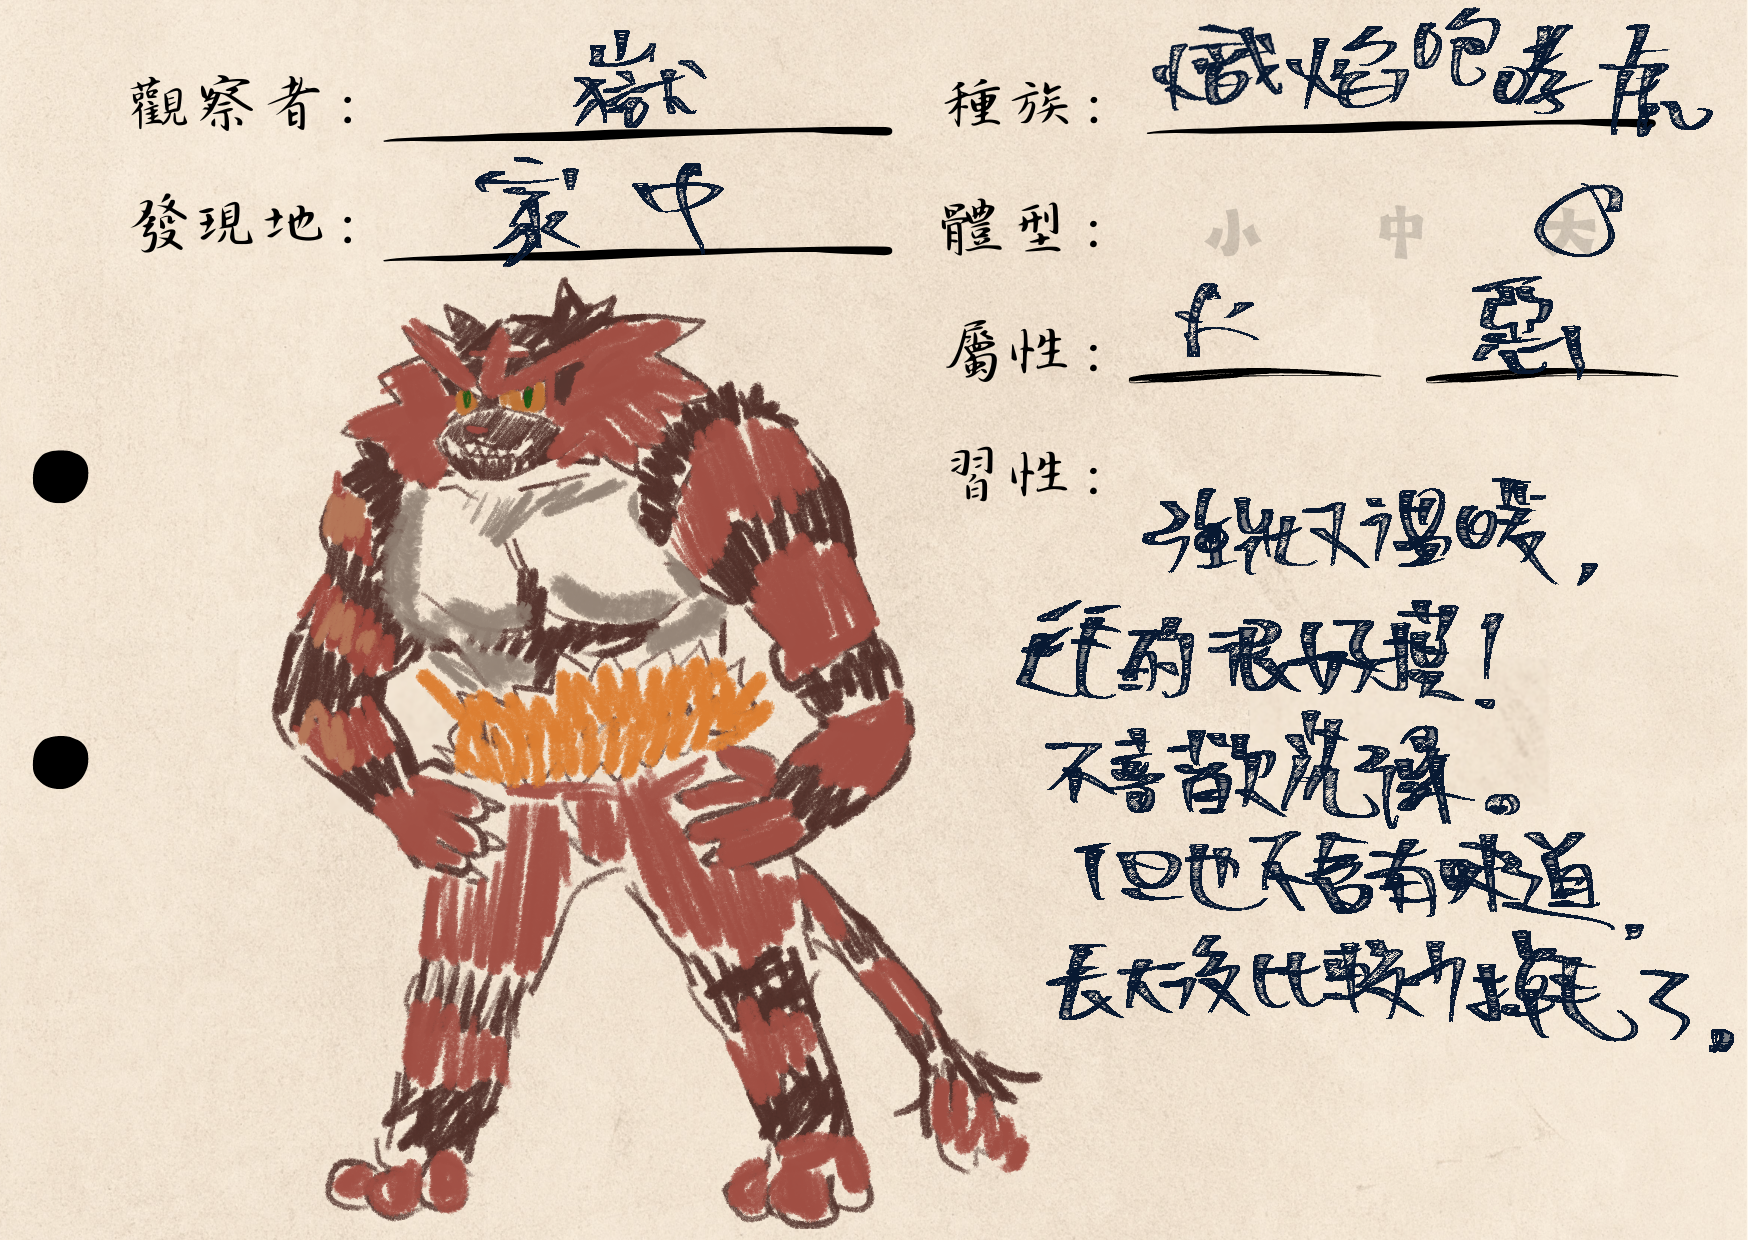 觀察者： 嶽
種族： 熾焰咆哮虎
發現地： 家中
體型： 小 中 大
屬性： 火 惡
習性：
強壯又溫暖，
毛的很好摸！
不喜歡洗澡。
但也不會有味道，
長大後比較少掉毛了。